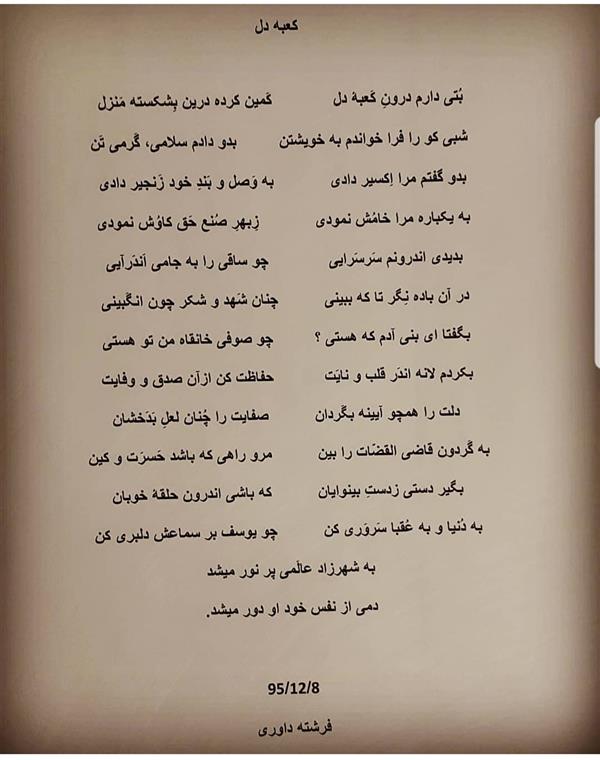 کعبه دل
بُتی دارم درونِ کَعبهٔ دل کَمین کرده درین بِشکسته مَنزل
شبی کو را فرا خواندم به خویشتن بدو دادم سلامی، گرمی تَن
بدو گفتم مرا اِکسیر دادی به وَصل و بَندِ خود زَنجیر دادی
به یکباره مرا خامُش نمودی زِبهرِ صُنع حَق کاوُش نمودی
بدیدی اندرونم سَرسَرایی چو ساقی را به جامی اَندَرآیی
در آن باده نِگر تا که ببینی چنان شَهد و شکر چون انگبینی
بگفتا ای بنی آدم که هستی ؟ چو صوفی خانقاه من تو هستی
بکردم لانه اندَر قلب و نایَت حفاظت کن ازآن صدق و وفایت
دلت را همچو آیینه بگردان صفایت را چُنان لعلِ بَدَخشان
به گردون قاضی القضّات را بین مرو راهی که باشد حَسرَت و کین
بگیر دستی زدستِ بینوایان که باشی اندرون حلقهٔ خوبان
به دُنیا و به عُقبا سَروَری کن چو یوسف بر سماعش دلبری کن
به شهرزاد عالَمی پر نور میشد
دمی از نفس خود او دور میشد.
95/12/8
فرشته داوری